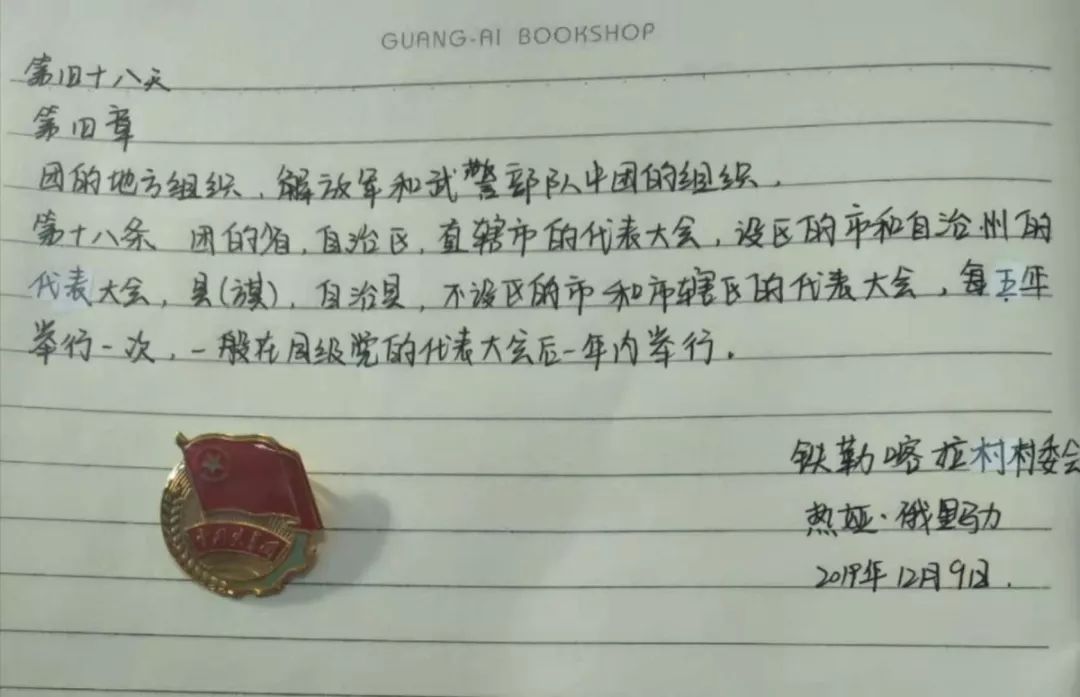 GUANG-AI BOOKSHOP
第四十八天
第四章
团的地方组织、解放军和武警部队中团的组织.
第十八条 团的省,自治区,直辖市的代表大会,设区的市和自治州的
代表大会,县(旗),自治县,不设区的市和市辖区的代表大会,每五年
举行一次,一般在同级党的代表大会后一年内举行.
铁勒喀拉村村委会
热娅·俄里马力
2019年12月9日.
中国共青团